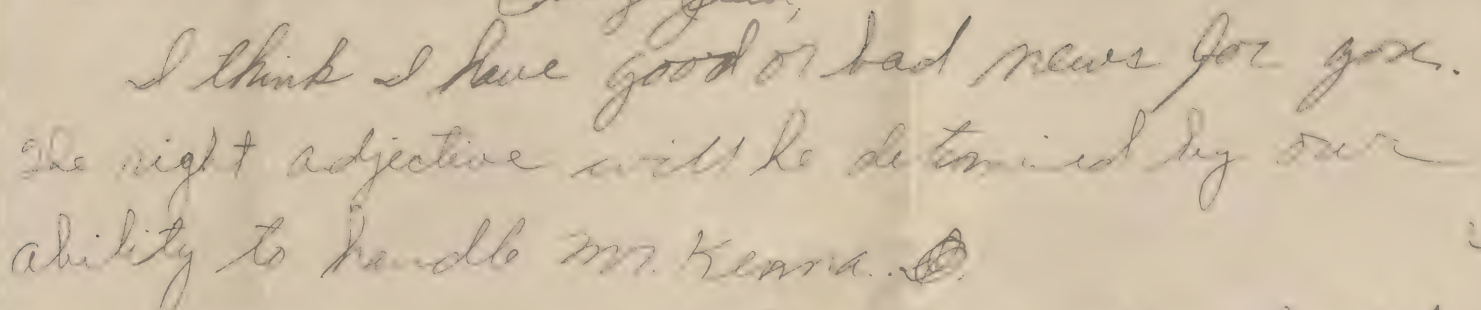 I think I have good or bad news for you.
The right adjective will be determined by our
ability to handle Mr. Kenna.